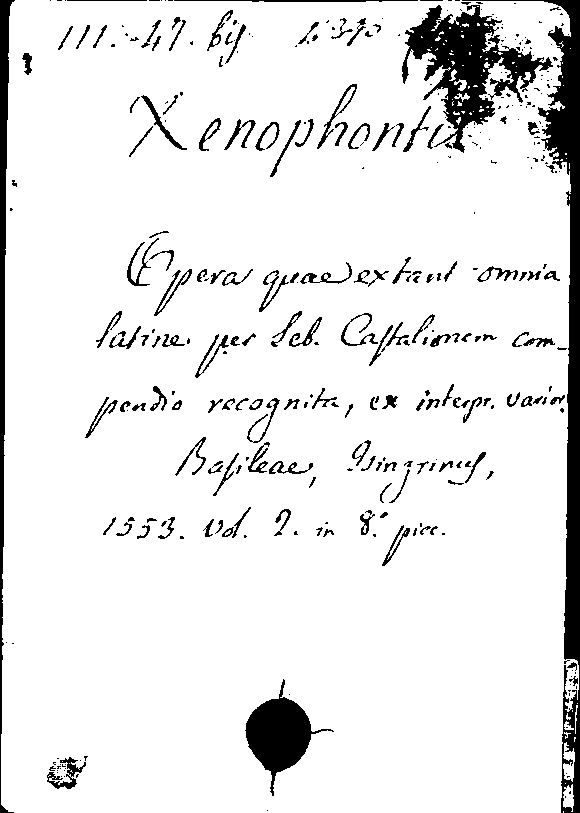 111. 47. bis
Xenophontis
Opera quae extant omnia
latine per Seb. Castalionem com-
pendio recognita, ex interpr. varior.
Basileae, Isingrinus,
1553. vol. 2. in 8.° picc.